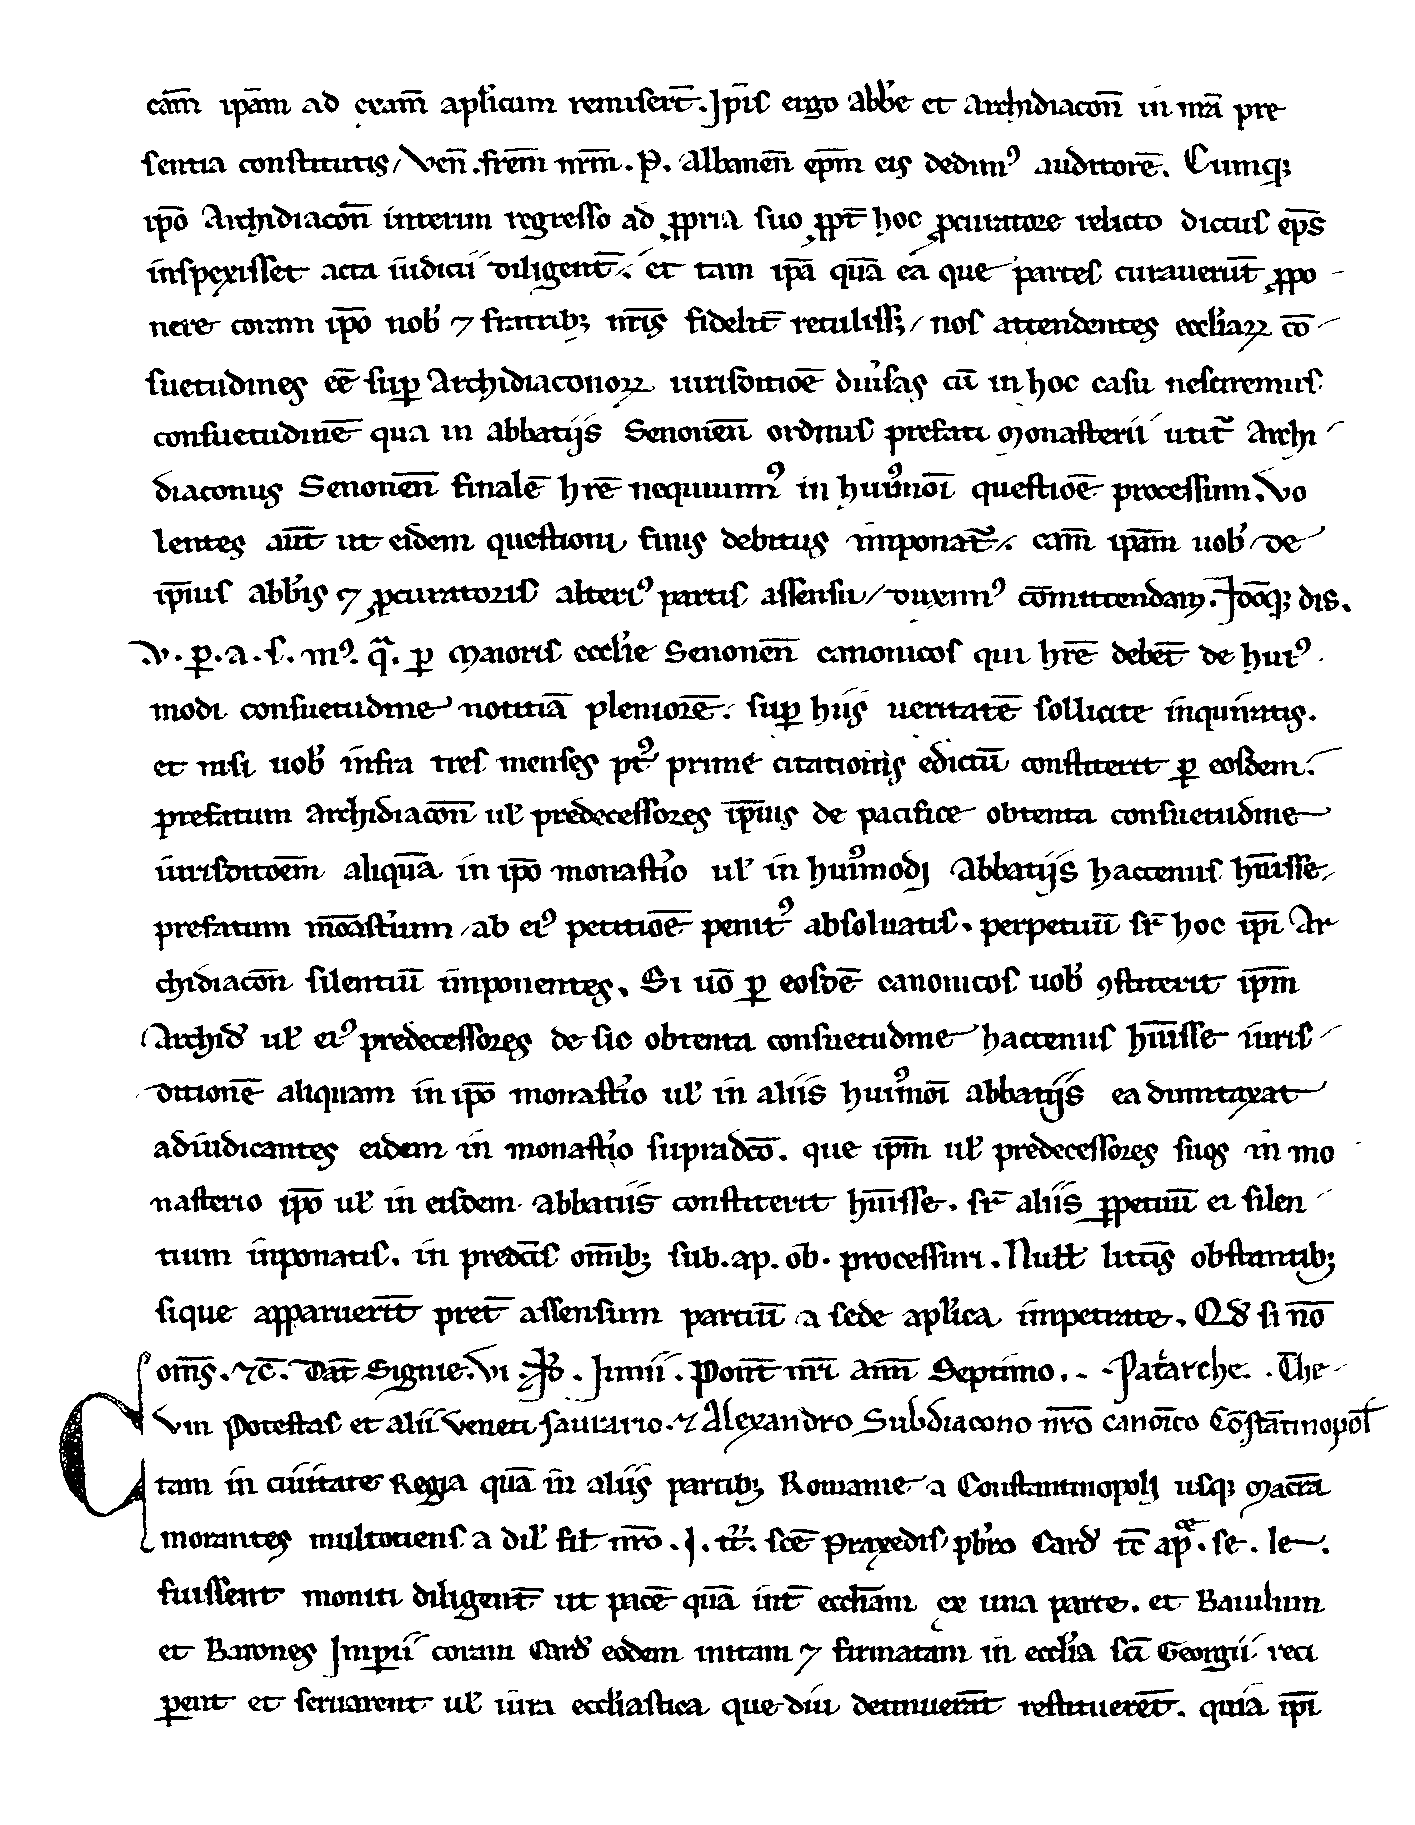 cām ipām ad exam̄ aplicum remiser̄t. Ip̄is ergo abbe et archidiacon̄ in nr̄a pre
sentia constitutis, ven̄. frem̄ nrm̄. P. Albanen̄ ep̄m eis dedim⁹ auditorē. Cumq;
ip̄o Archidiacon̄ interim regresso ad ꝓpria suo ꝓpt̄ hoc ꝓcuratore relicto dictus ep̄s
inspexisset acta iudicii diligent̄. et tam ip̄a quā ea que partes curauerūt ꝓpo
nere coram ip̄o nob̓ ⁊ fratrib; nr̄is fidelit̄ retuliss;, nos attendentes eccl̓iaꝝ cō
suetudines eē suꝑ Archidiaconoꝝ iurisdictioē diu̓sas cū in hoc casu nesciremus
consuetudinē qua in abbatiis Senonen̄ ordinis prefati monasterii utit̄ Archi
diaconus Senonen̄ finalē hr̄e nequiuim⁹ in hui⁹moi questioē processum. Vo
lentes aūt ut eidem questioni finis debitus imponat̄. cām ipām uob̓ de
ip̄ius abb̓is ⁊ ꝓcuratoris alteri⁹ partis assensu, duxim⁹ cōmittendam. Iōq; dis.
v. ꝑ. a. s. m⁹. qͣ. ꝑ maioris eccl̓ie Senonen̄ canonicos qui hr̄e debēt de hui⁹
modi consuetudine notitiā pleniorē. suꝑ hiis ueritatē sollicite inquiratis.
et nisi uob̓ infra tres menses pt⁹ prime citationis edictū constiterit ꝑ eosdem
prefatum archidiacon̄ ul̓ predecessores ip̄ius de pacifice obtenta consuetudine
iurisdictoēm aliquā in ip̄o monast̓io ul̓ in hui⁹modi Abbatiis hactenus hūisse
prefatum monast̓ium ab ei⁹ petitioē penit⁹ absoluatis. perpetuū sr̄ hoc ip̄i Ar
chidiacon̄ silentiū imponentes. Si uō ꝑ eosdē canonicos uob̓ ꝯstiterit ip̄m
Archid̓ ul̓ ei⁹ predecessores de sic obtenta consuetudine hactenus hūisse iuris
dictionē aliquam in ip̄o monast̓io ul̓ in aliis hui⁹moi abbatiis ea dumtaxat
adiudicantes eidem in monast̓io supradc̄o. que ip̄m ul̓ predecessores suos in mo
nasterio ip̄o ul̓ in eisdem abbatiis constiterit hūisse. sr̄ aliis ꝑpetuū ei silen
tium inponatis. in predc̄is om̄ib; sub. ap. ob. processuri. Null̓ litt̄is obstantib;
sique apparuerīt pret̄ assensum partiū a sede apl̓ica impetrate. Qd̓ si nō
om̄s. ⁊c̄. Dat̄ Signie. vi Id̓. Iunii. Pont̄ nr̄i ann̄ Septimo. . Patarche. . The
vin Potestas et alii Veneti sautario. ⁊ Alexandro Subdiacono nr̄o canoīco Cōstātinopol̓
Tam in ciuitate Regia quā in aliis partib; Romanie a Constantinopoli usq; macrā
morantes multotiens a dil̓ fil̓ nr̄o. I. tt̓. scē Praxedis pb̓ro Card̓ tc̄ ap. se. le.
fuissent moniti diligent̄ ut pacē quā int̄ eccl̓iam ex una parte. et Baiulum
et Barones Imperii coram Card̓ eodem initam ⁊ firmatam in eccl̓ia scī Georgii reci
perent et seruarent ul̓ iura eccl̓iastica que diu detinuerāt restituerēt. quia ip̄i